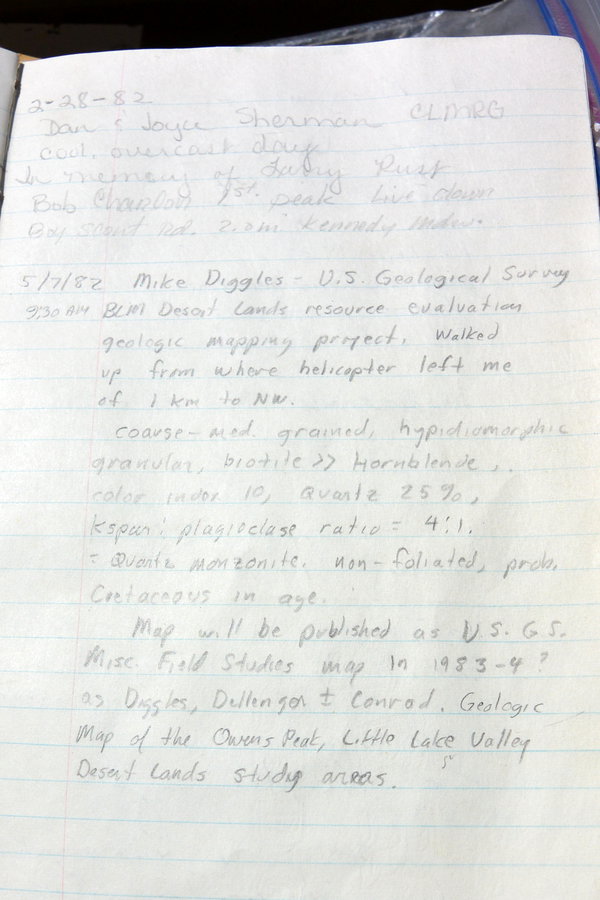 2-28-82
Dan & Joyce Sherman CLMRG
cool, overcast day
In memory of Larry Rust
Bob 1st. peak live down
Boy Scout Rd. 2.0mi Kennedy Mdw.
5/7/82 Mike Diggles - U.S. Geological Survey
9:30 AM BLM Desert Lands resource evaluation
geologic mapping project. Walked
up from where helicopter left me
of 1 km to NW.
coarse-med. grained, hypidiomorphic
granular, biotite >> Hornblende,
color index 10, Quartz 25%,
kspar: plagioclase ratio = 4:1.
= Quartz monzonite. non-foliated, prob.
Cretaceous in age.
Map will be published as U.S.G.S.
Misc. Field Studies map in 1983-4?
as Diggles, Dellenger ± Conrad. Geologic
Map of the Owens Peak, Little Lake Valley
Desert Lands study areas.